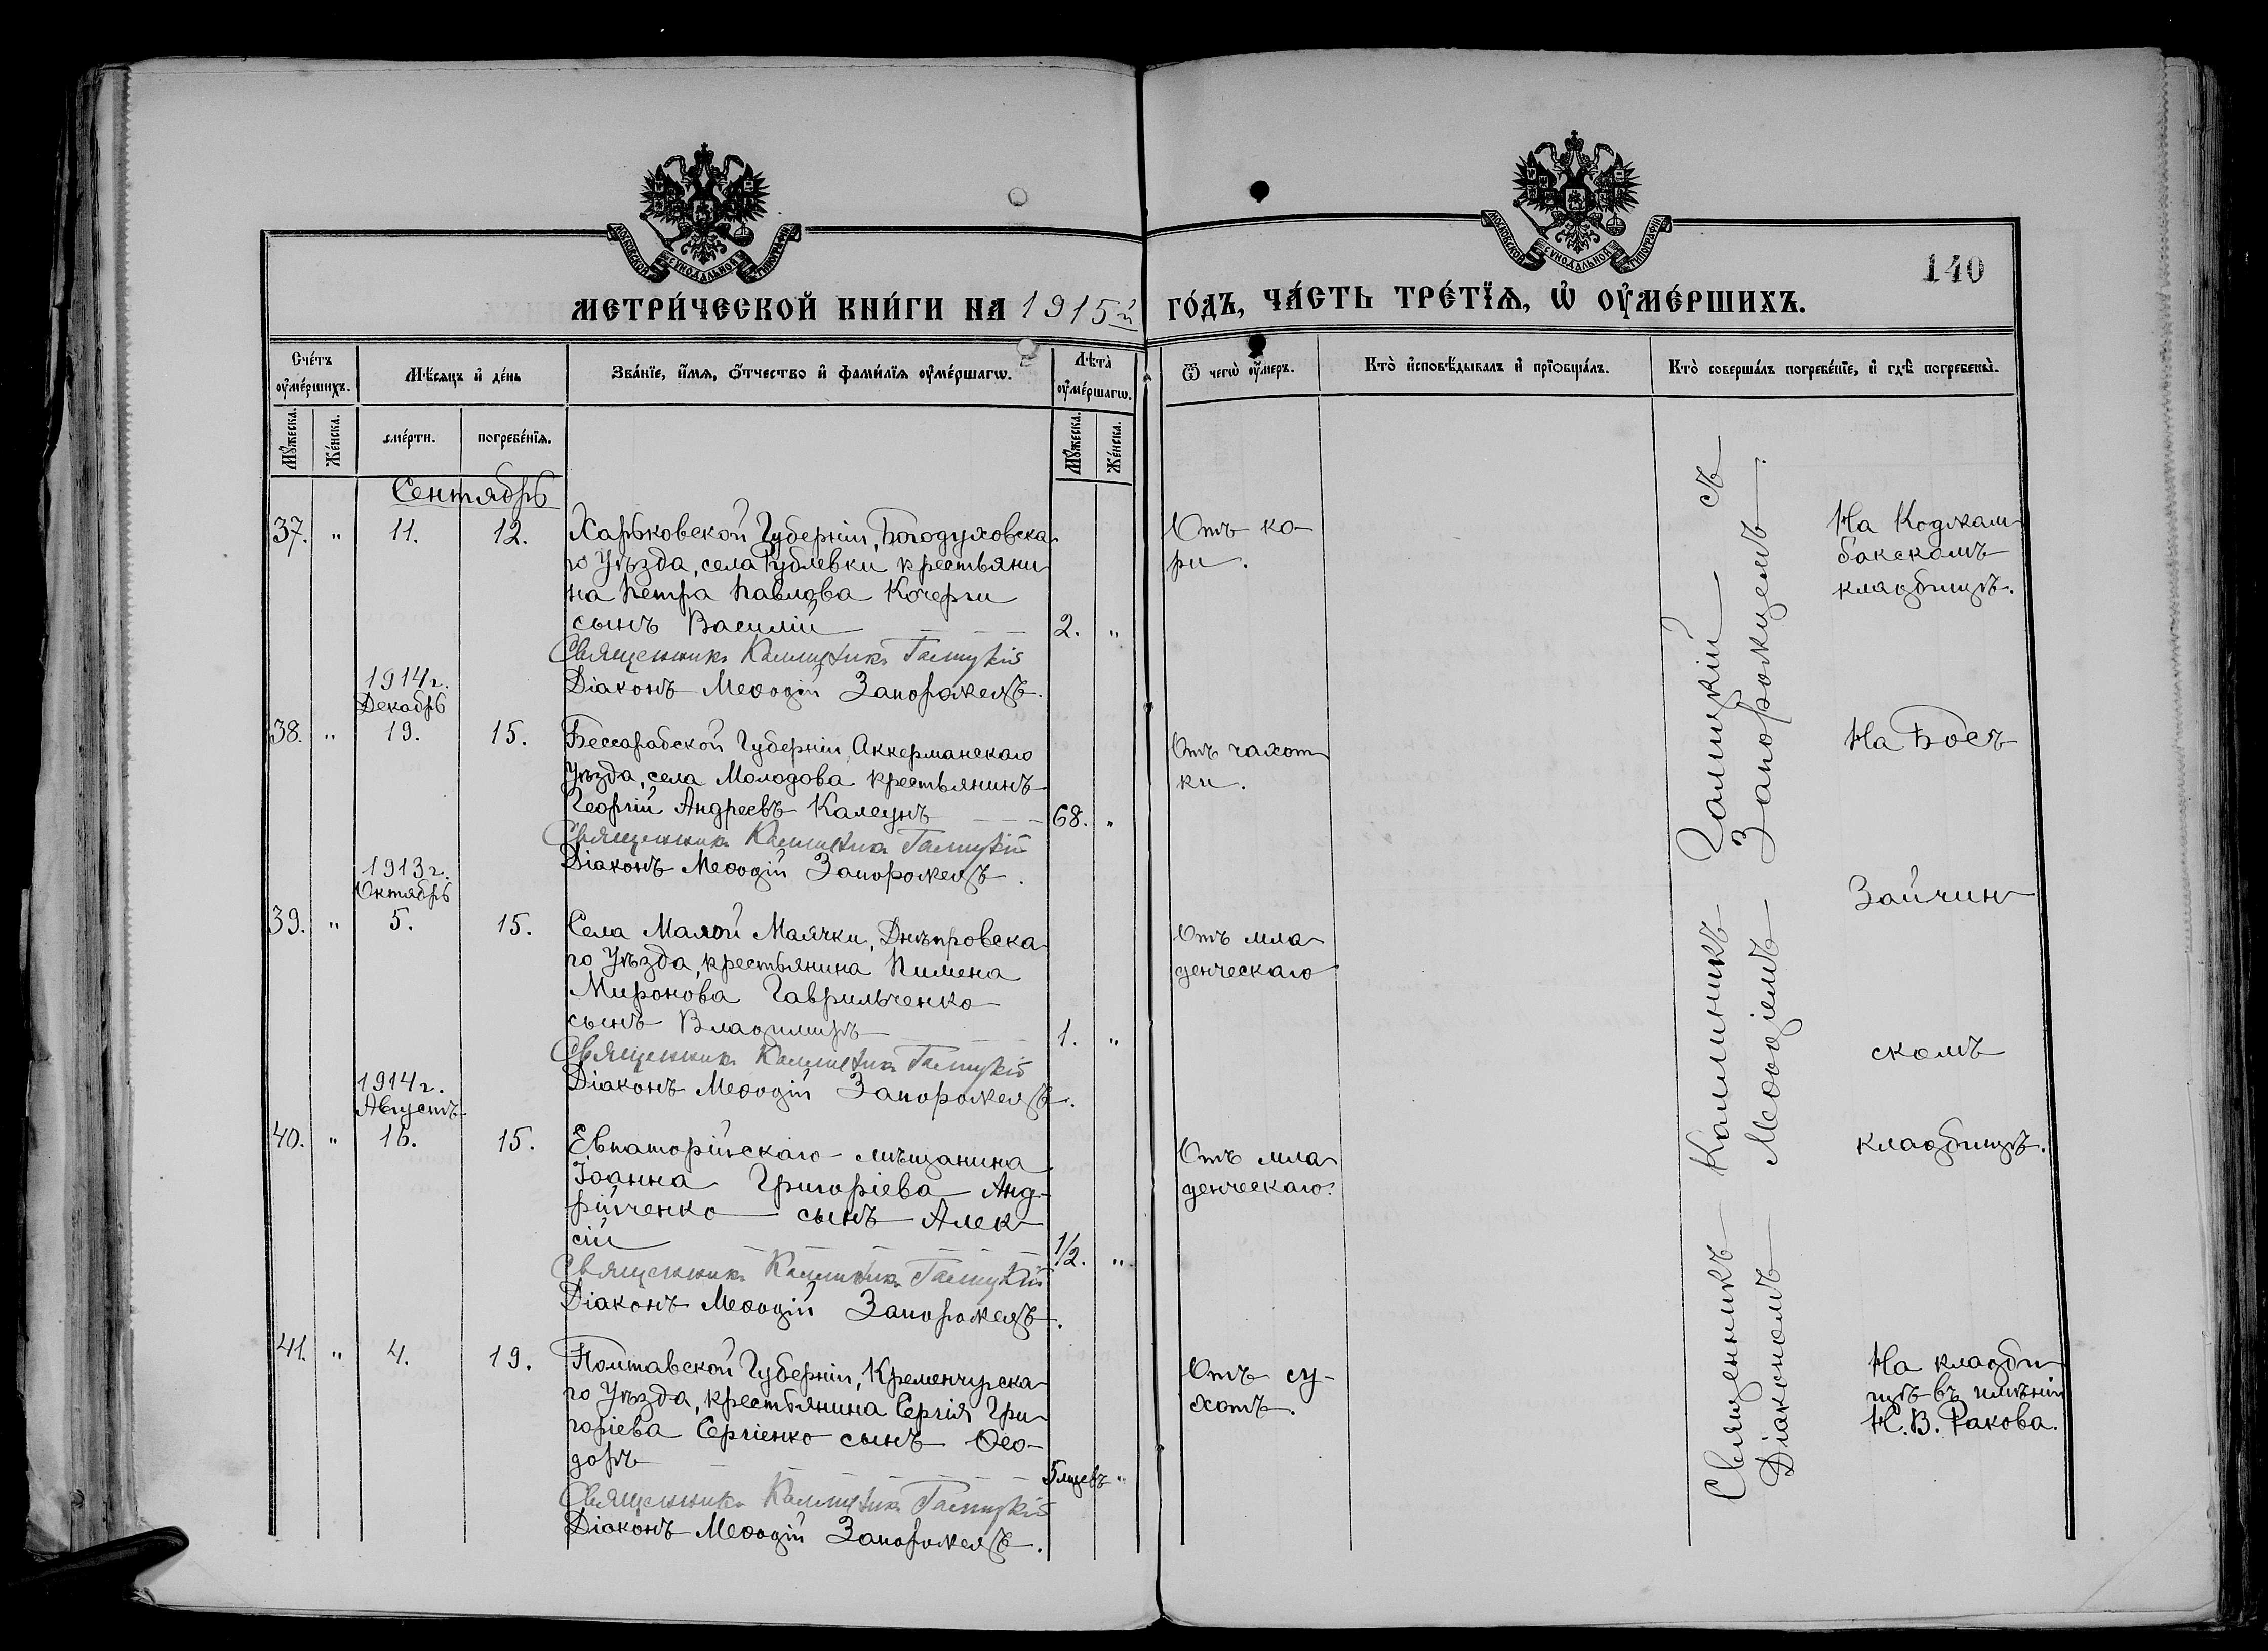 МОСКОВСКОЙ СѴНОДАЛЬНОЙ ТИПОГРАФІИ
МОСКОВСКОЙ СѴНОДАЛЬНОЙ ТИПОГРАФІИ
140
МЕТРИ́ЧЕСКОЙ КНИ́ГИ НА 1915й
ГО́ДЪ, ЧА́СТЬ ТРЕ́ТЇѦ, Ѡ҆ ОУ҆МЕ́РШИХЪ.
Сче́тъ оу҆ме́ршихъ.
Мꙋ́жеска.
Же́нска.
Мѣ́сѧцъ и҆ де́нь
сме́рти.
погребе́нїѧ.
Зва́нїе, и҆́мѧ, ѻ҆́тчество и҆ фами́лїѧ оу҆ме́ршагѡ.
Лѣ́та̀ оу҆ме́ршагѡ.
Мꙋ́жеска.
Же́нска.
Ѿ чегѡ̀ оу҆́меръ.
Кто̀ и҆сповѣ́дывалъ и҆ прїѡбща́лъ.
Кто̀ соверша́лъ погребе́нїе, и҆ гдѣ̀ погребены̀.
Сентябрь
37. " 11. 12.
Харьковской Губерніи, Богодуховска-
го Уѣзда, села Рублевки крестьяни-
на Петра Павлова Кочерги
сынъ Василій 2. "
Священникъ Каллиникъ Галицкій
Діаконъ Меѳодій Запорожецъ.
Отъ ко-
ри.
На Коджам-
бакскомъ
кладбищѣ.
1914 г.
Декабрь
38. " 19. 15.
Бессарабской Губерніи, Аккерманскаго
Уѣзда, села Молодова крестьянинъ
Георгій Андреевъ Калсунъ 68. "
Священникъ Каллиникъ Галицкій
Діаконъ Меѳодій Запорожецъ.
Отъ чахот-
ки.
На Босъ
1913 г.
Октябрь
39. " 5. 15.
Села Малой Маячки, Днѣпровска-
го Уѣзда, крестьянина Пимена
Миронова Гаврильченко
сынъ Владимиръ 1. "
Священникъ Каллиникъ Галицкій
Діаконъ Меѳодій Запорожецъ.
Отъ мла-
денческаго
Зайчин-
скомъ
1914 г.
Августъ
40. " 16. 15.
Евпаторійскаго мѣщанина
Іоанна Григоріева Анд-
рійченко сынъ Алек-
сій 1/2. "
Священникъ Каллиникъ Галицкій
Діаконъ Меѳодій Запорожецъ.
Отъ мла-
денческаго.
кладбищѣ.
41. " 4. 19.
Полтавской Губерніи, Кременчугска-
го Уѣзда, крестьянина Сергія Гри-
горіева Сергіенко сынъ Ѳео-
доръ 5 мцевъ "
Священникъ Каллиникъ Галицкій
Діаконъ Меѳодій Запорожецъ.
Отъ су-
хотъ.
На кладби-
щѣ въ имѣніи
Н. В. Ракова.
Священникъ Каллиникъ Галицкій съ
Діакономъ Меѳодіемъ Запорожцемъ.